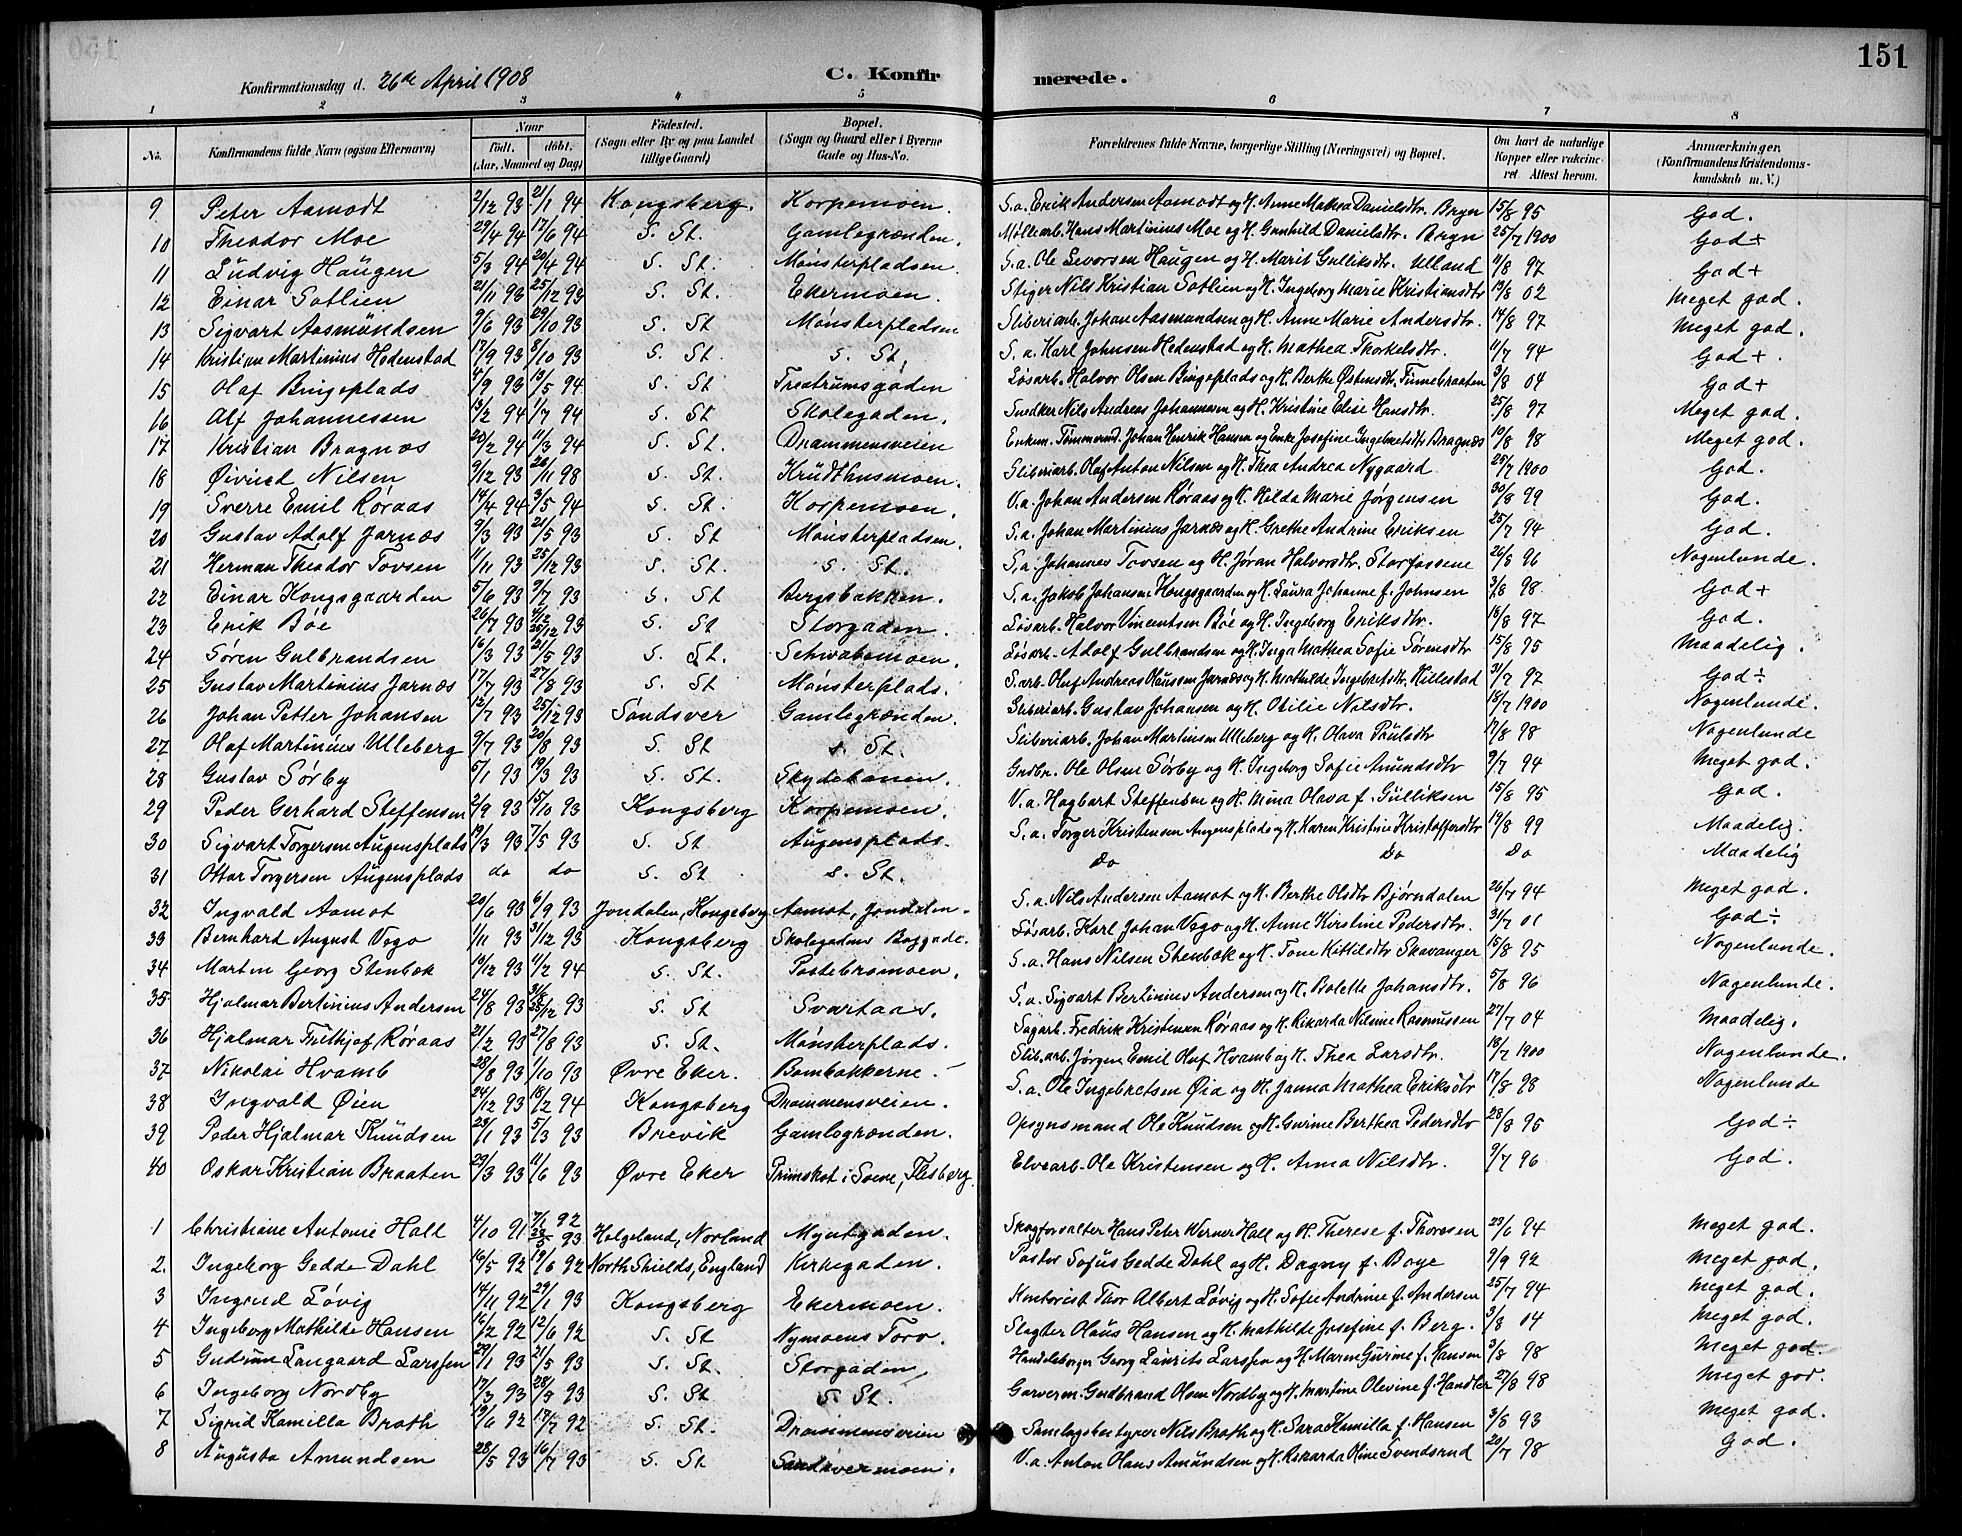 151
Konfirmationsdag d. 26de April 1908 C. Konfirmerede.
1 2 3 4 5 6 7 8
No. Konfirmandens fulde Navn (ogsaa Efternavn) Naar født. døbt. (Aar, Maaned og Dag) Fødested. (Sogn eller By og paa Landet tillige Gaard) Bopæl. (Sogn og Gaard eller i Byerne Gade og Hus-No. Forældrenes fulde Navne, borgerlige Stilling (Næringsvei) og Bopæl. Om havt de naturlige Kopper eller vakcineret Attest herom. Anmærkninger. (Konfirmandens Kristendomskundskab m. V.)
9 Peter Aamodt 2/12 93 21/1 94 Kongsberg. Korpemoen. S.a. Erik Andersen Aamodt og H. Anne Mathea Danielsdtr. Bryn 15/8 95 God.
10 Theodor Moe 29/4 94 17/6 94 S. St. Gamlegrænden. Møllearb. Hans Martinius Moe og H. Gunhild Danielsdtr. Bryn 25/7 1900 God±
11 Ludvig Haugen 5/3 94 20/4 94 S. St. Mønsterpladsen. S.a. Ole Levorsen Haugen og H. Marit Gulliksdtr. Ulland 11/8 97 God+
12 Einar Sotlien 21/11 93 25/12 93 S. St. Ekermoen. Stiger Nils Kristian Sotlien og H. Ingeborg Marie Kristiansdtr 13/8 02 Meget god.
13 Sigvart Aasmundsen 9/6 93 29/10 93 S. St Mønsterpladsen Sliberiarb. Johan Aasmundsen og H. Anne Marie Andersdtr. 14/8 97 Meget god.
14 Kristian Martinius Hedenstad 17/9 93 8/10 93 S. St. S. St. S.a. Karl Johnsen Hedenstad og H. Mathea Thorkelsdtr. 11/7 94 God+.
15 Olaf Bingeplads 4/9 93 13/5 94 S. St Træstrumsgaden Løsarb. Halvor Olsen Bingeplads og H. Berthe Østensdtr. Finnebraaten 3/8 04 God+
16 Alf Johannessen 13/2 94 1/7 94 S. St Skolegaden. Snedker Nils Andreas Johannesen og H. Kristine Elise Hansdtr. 25/8 97 Meget god.
17 Kristian Bragnæs 20/2 94 11/3 94 S. St. Drammensveien Enkem. Tømmermd. Johan Henrik Hansen og Enke Josefine Ingebretsdtr Bragnæs 10/8 98 Meget god.
18 Øivind Nilsen 9/12 93 26/11 98 S. St. Krudthusmoen. Sliberiarb. Olaf Anton Nilsen og H. Thea Andrea Nygaard 25/7 1900 God.
19 Sverre Emil Røraas 14/4 94 3/5 94 S. St. Korpemoen. V.a. Johan Andersen Røraas og H. Hilda Marie Jørgensen 30/8 99 God.
20 Gustav Adolf Jarnæs 9/3 93 21/5 93 S. St Mønsterpladsen. S.a. Johan Martinius Jarnæs og H. Grethe Andrine Eriksen 25/7 94 God.
21 Herman Theodor Tovsen 11/11 93 25/12 93 S. St. S. St. S.a. Johannes Tovsen og H. Jøran Halvorsdtr. Storfossene 26/8 96 Nogenlunde.
22 Einar Kongsgaarden 5/6 93 9/7 93 S. St Bergsbakken. S.a. Jakob Johansen Kongsgaarden og H. Laura Johanne f. Johnsen 3/8 98. God+
23 Erik Bøe 26/7 93 25/12 93 S. St Storgaden. Løsarb. Halvor Vincentsen Bøe og H. Ingeborg Eriksdtr. 18/8 97 God.
24 Søren Gulbrandsen 16/3 93 21/5 93 S. St. Schwabemoen. Løsarb. Adolf Gulbrandsen og H. Inga Mathea Sofie Sørensdtr 15/8 95 Maadelig.
25 Gustav Martinius Jarnæs 17/7 93 27/8 93 S. St Mønsterplads. S.arb. Oluf Andreas Claussen Jarnæs og H. Mathilde Ingebretsdtr. Hillestad 31/7 97 God÷
26 Johan Petter Johansen 12/7 93 25/12 93 Sandsver Gamlegrænden. Sliberiarb. Gustav Johansen og H. Otilie Nilsdtr. 18/7 1900 Nogenlunde.
27 Olaf Martinius Ulleberg 9/7 93 20/8 93 S. St S. St. Sliberiarb. Johan Martinsen Ulleberg og H. Olava Paulsdtr 17/8 98 Nogenlunde
28 Gustav Sørby 5/1 93 19/3 93 S. St. Skydebanen. Grdbr. Ole Olsen Sørby og H. Ingeborg Sofie Amundsdtr 9/7 94 Meget god.
29 Peder Gerhard Steffensen 2/9 93 15/10 93 Kongsberg Korpemoen. V.a. Hagbart Steffensen og H. Mina Olava f. Gulliksen 15/8 95 God.
30 Sigvart Torgersen Augensplads 19/3 93 7/5 93 S. St Augensplads. S.a. Torger Kristensen Augensplads og H. Karen Kristine Kristoffersdtr 19/8 99 Maadelig.
31 Ottar Torgersen Augensplads do do S. St S. St. Do Do Do Maadelig
32 Ingvald Aamot 20/6 93 6/9 93 Jondalen, Kongsberg Aamot, Jondalen. S.a. Nils Andersen Aamot og H. Berthe Olsdtr Bjørndalen 26/7 94 Meget god.
33 Bernhard August Vego 1/11 93 31/12 93 Kongsberg Skolegadens Baggade. Løsarb. Karl Johan Vego og H. Anne Kirstine Pedersdtr. 31/7 01 God÷
34 Marten Georg Stenbæk 19/12 93 11/2 94 S. St. Postebromoen. S.a. Hans Nilsen Stenbæk og H. Tone Kittilsdtr Skavanger 15/8 95 Nogenlunde.
35 Hjalmar Bertinius Andersen 24/8 93 31/8 25/12 93 S. St Svartaas. S.a. Sigvart Bertinius Andersen og H. Bolette Johansdtr. 5/8 96 Nogenlunde.
36 Hjalmar Frithjof Røraas 21/2 93 27/8 93 S. St. Mønsterplads. Sagarb. Fredrik Kristensen Røraas og H. Rikarda Nilsine Rasmussen 27/7 04 Maadelig.
37 Nikolai Hvamb 28/8 93 1/10 93 Øvre Eker. Bombakkerne. Slib.arb. Jørgen Emil Oluf Hvamb og H. Thea Larsdtr. 18/7 1900 Nogenlunde.
38 Ingvald Øien 24/12 93 18/2 94 Kongsberg Drammensveien. S.a. Ole Ingebretsen Øia og H. Janna Mathea Eriksdtr 17/8 98 Nogenlunde
39 Peder Hjalmar Knudsen 23/1 93 5/3 93 Brevik Gamlegrænden. Opsynsmand Ole Knudsen og H. Gurine Berthea Pedersdtr 28/8 95 God÷
40 Oskar Kristian Braaten 29/3 93 11/6 93 Øvre Eker Primskot i Svene, Flesberg. Elvearb. Ole Kristensen og H. Anna Nilsdtr. 9/7 96 God.
1 Christiane Antonie Hall 4/10 91 7/1 92 28/5 93 Helgeland, Norland Myntgaden. Skogforvalter Hans Peter Werner Hall og H. Therese f. Thoresen 23/6 94 Meget god.
2. Ingeborg Gedde Dahl 16/5 92 19/6 92 North Shields, England Kirkegaden. Pastor Sofus Gedde Dahl og H. Dagny f. Boye 9/9 92 Meget god.
3 Ingrid Løvig 14/11 92 29/1 93 Kongsberg Ekermoen. Kontorist Thor Albert Løvig og H. Sofie Andrine f. Andersen 25/7 94 Meget god.
4 Ingeborg Mathilde Hansen 16/2 92 12/6 92 S. St Nymoens Torv. Slagter Olaus Hansen og H. Mathilde Josefine f. Berg. 3/8 04 Meget god.
5 Gudrun Langaard Larssen 29/1 93 21/5 93 S. St. Storgaden, Handelsborger Georg Laurits Larssen og H. Maren Gurine f. Hansen 3/8 98 Meget god.
6 Ingeborg Nordby 17/3 93 28/5 93 S. St S. St. Garverm. Gudbrand Olsen Nordby og H. Martine Olevine f. Handler 27/8 98 Meget god.
7 Sigrid Kamilla Brath 19/6 92 17/7 92 S. St. Drammensveien Samlagsbestyrer Nils Brath og H. Sara Kamilla f. Hansen 3/8 93 Meget god.
8 Augusta Amundsen 28/5 93 16/7 93 S. St Sandsvermoen. V.a. Anton Olaus Amundsen og H. Rikarda Oline Svendsrud 20/7 98 God.